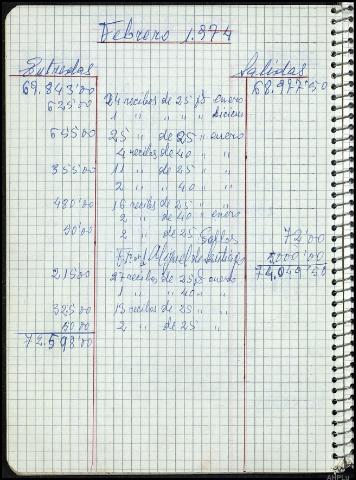 Febrero 1.974
Entradas Salidas
69.843'00 68.977'50
625'00 24 recibos de 25 ps enero
1 " " " " Diciem
655'00 25 " de 25 " enero
4 recibos de 40 " "
355'00 11 " de 25 " "
2 " " 40 " "
480'00 16 recibos de 25 " "
2 " de 40 " enero
50'00 2 " de 25 Gastos 72'00
de 5.000'00
715'00 27 recibos de 25 ps enero 74.049'50
1 " " 40 " "
325'00 13 recibos de 25 " "
50'00 2 " de 25 " "
72.598'00
AHPLu